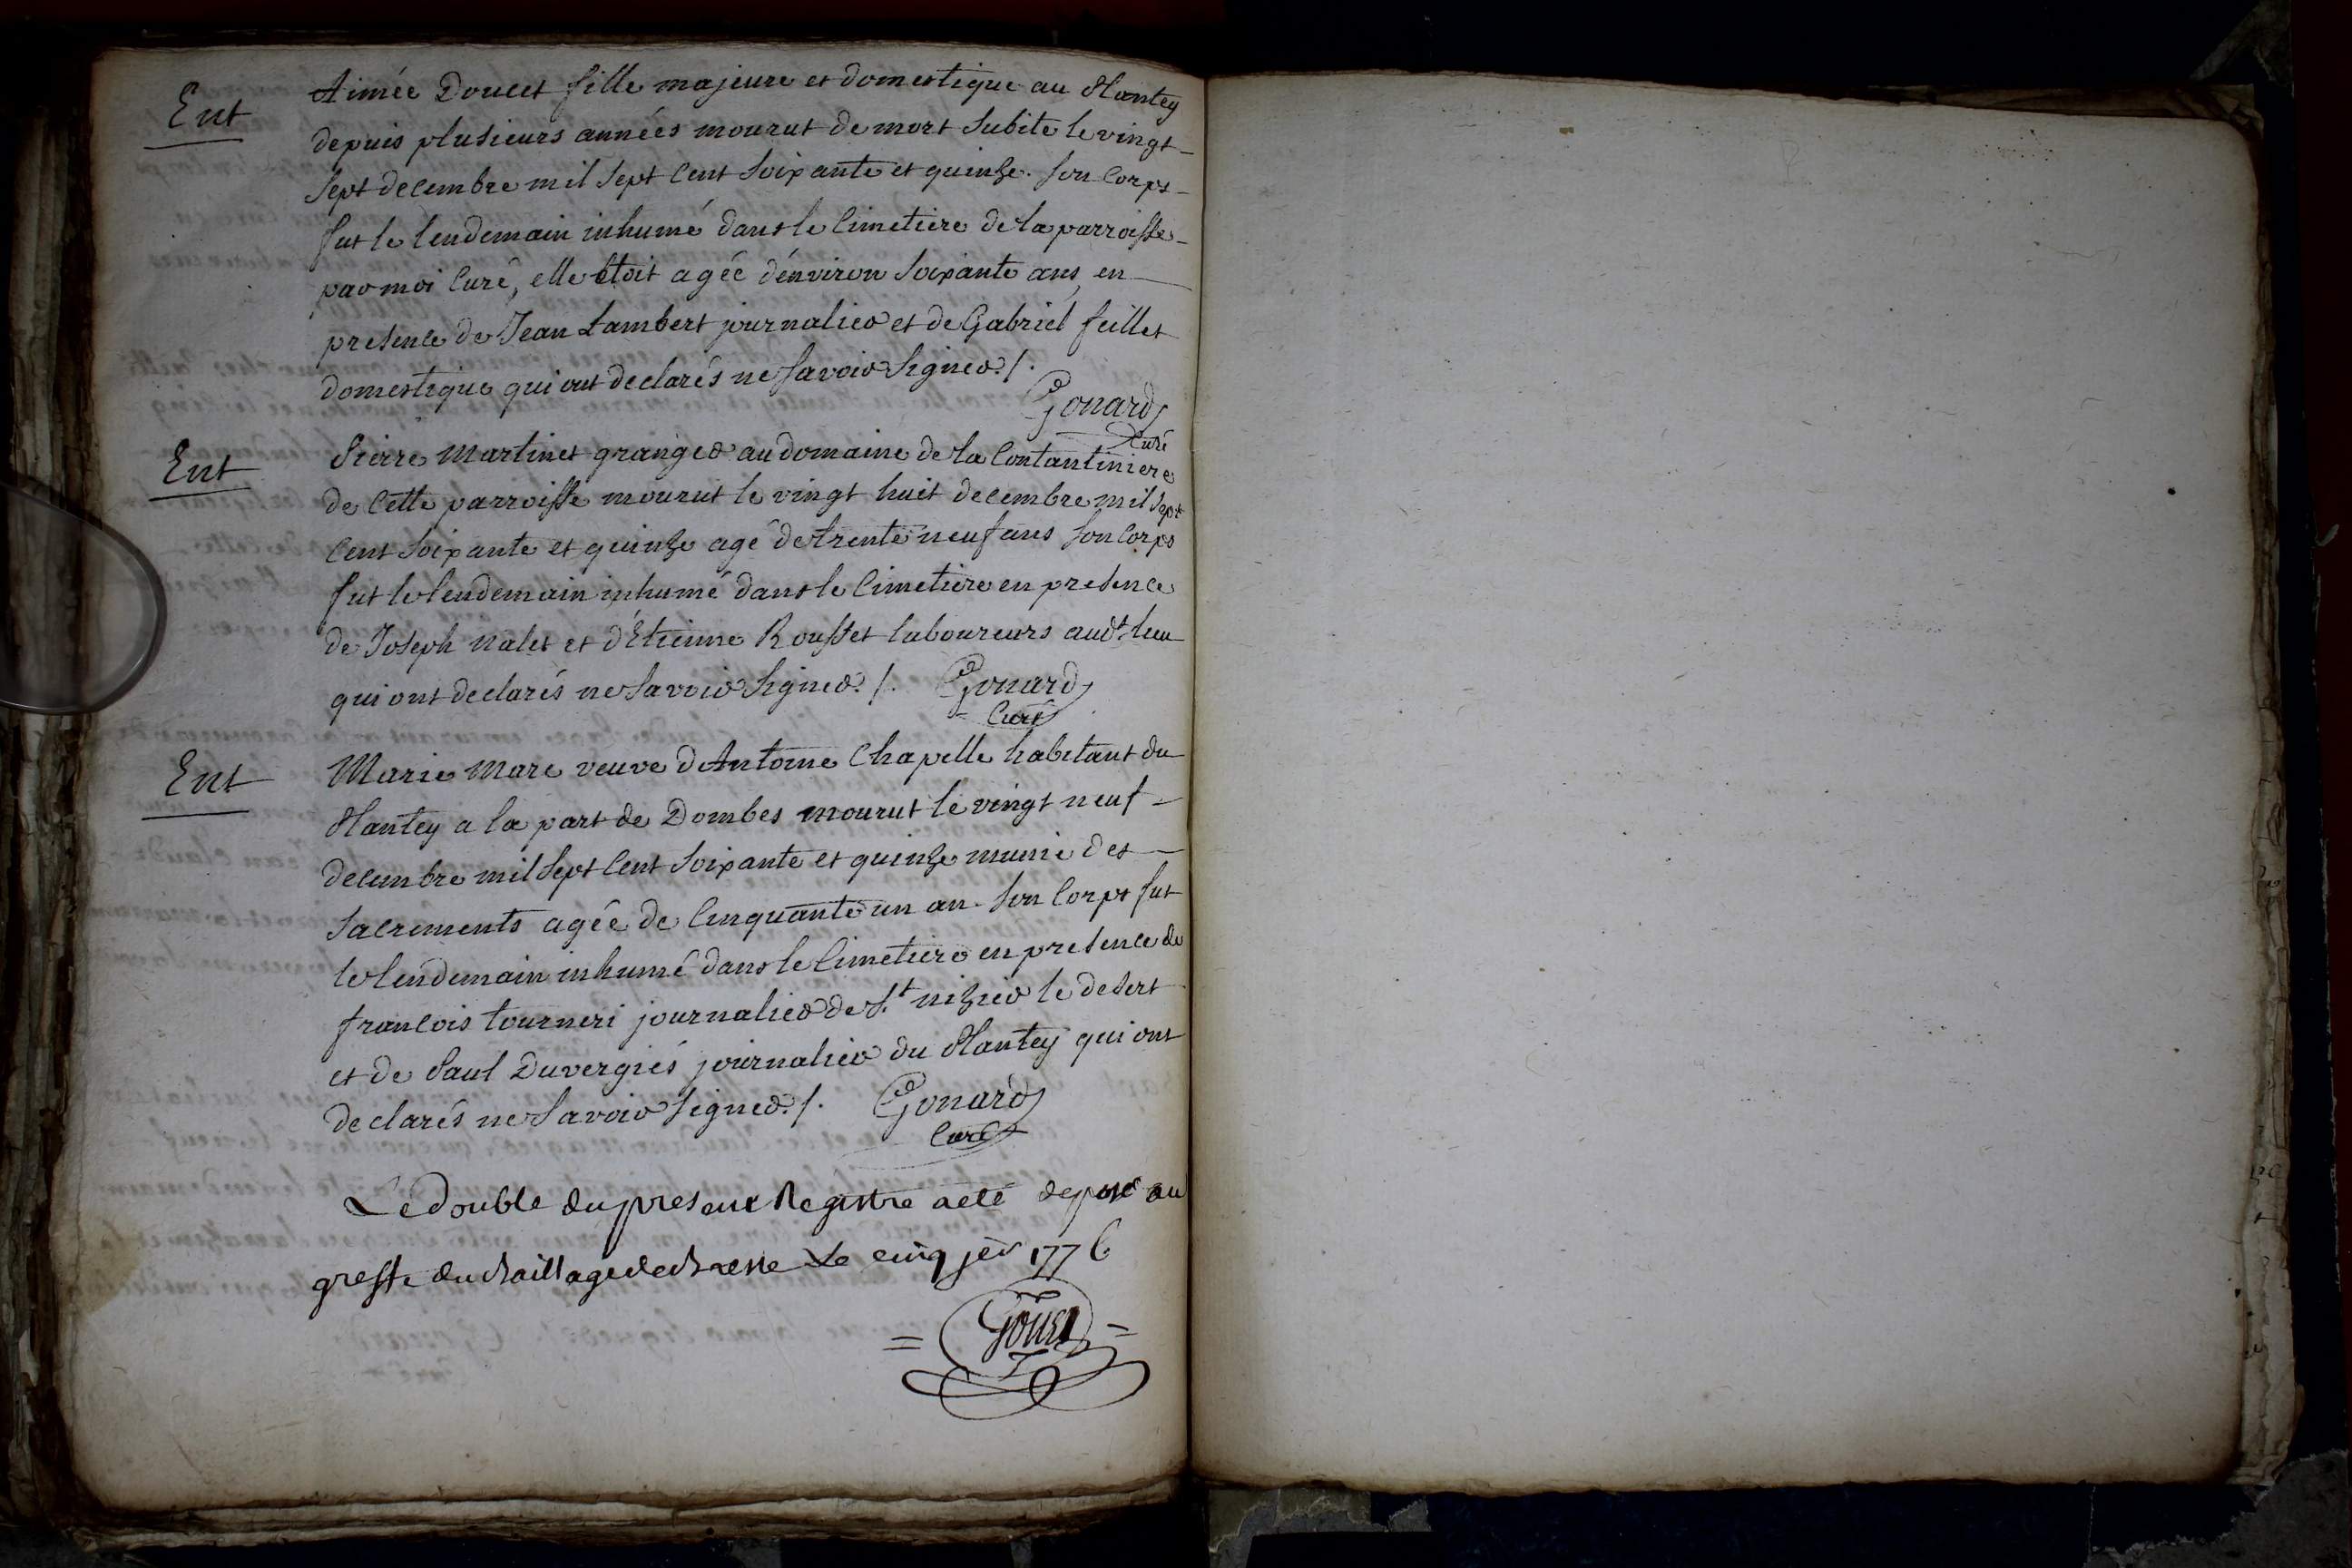 Ent
Aimée Doucet fille majeure et domestique au Plantey
depuis plusieurs années mourut de mort subite le vingt
sept decembre mil sept cent soixante et quinze. son corps
fut le lendemain inhumé dans le cimetiere de la parroisse
par moi curé, elle étoit agée d'environ soixante ans, en
presence de Jean Lambert journalier et de Gabriel feillet
domestique qui ont declarés ne savoir signer ./.
Gonard
Curé
Ent
Pierre Martinet granger au domaine de la Contantiniere
de cette parroisse mourut le vingt huit decembre mil sept
cent soixante et quinze agé de trente neuf ans son corps
fut le lendemain inhumé dans le cimetiere en presence
de Joseph Nalet et d'Etienne Rousset laboureurs audt lieu
qui ont declarés ne savoir signer ./. Gonard
Curé
Ent
Marie Mare veuve d'Antoine Chapelle habitant du
Plantey a la part de Dombes mourut le vingt neuf
decembre mil sept cent soixante et quinze munie des
sacrements agée de cinquante un an. son corps fut
le lendemain inhumé dans le cimetiere en presence de
francois tourneri journalier de St. nizier le desert
et de Paul Duvergiés journalier du Plantey qui ont
declarés ne savoir signer ./. Gonard
Curé
Le double du present Registre a eté deposé au
greffe du Baillage de Bresse Le cinq jer 1776